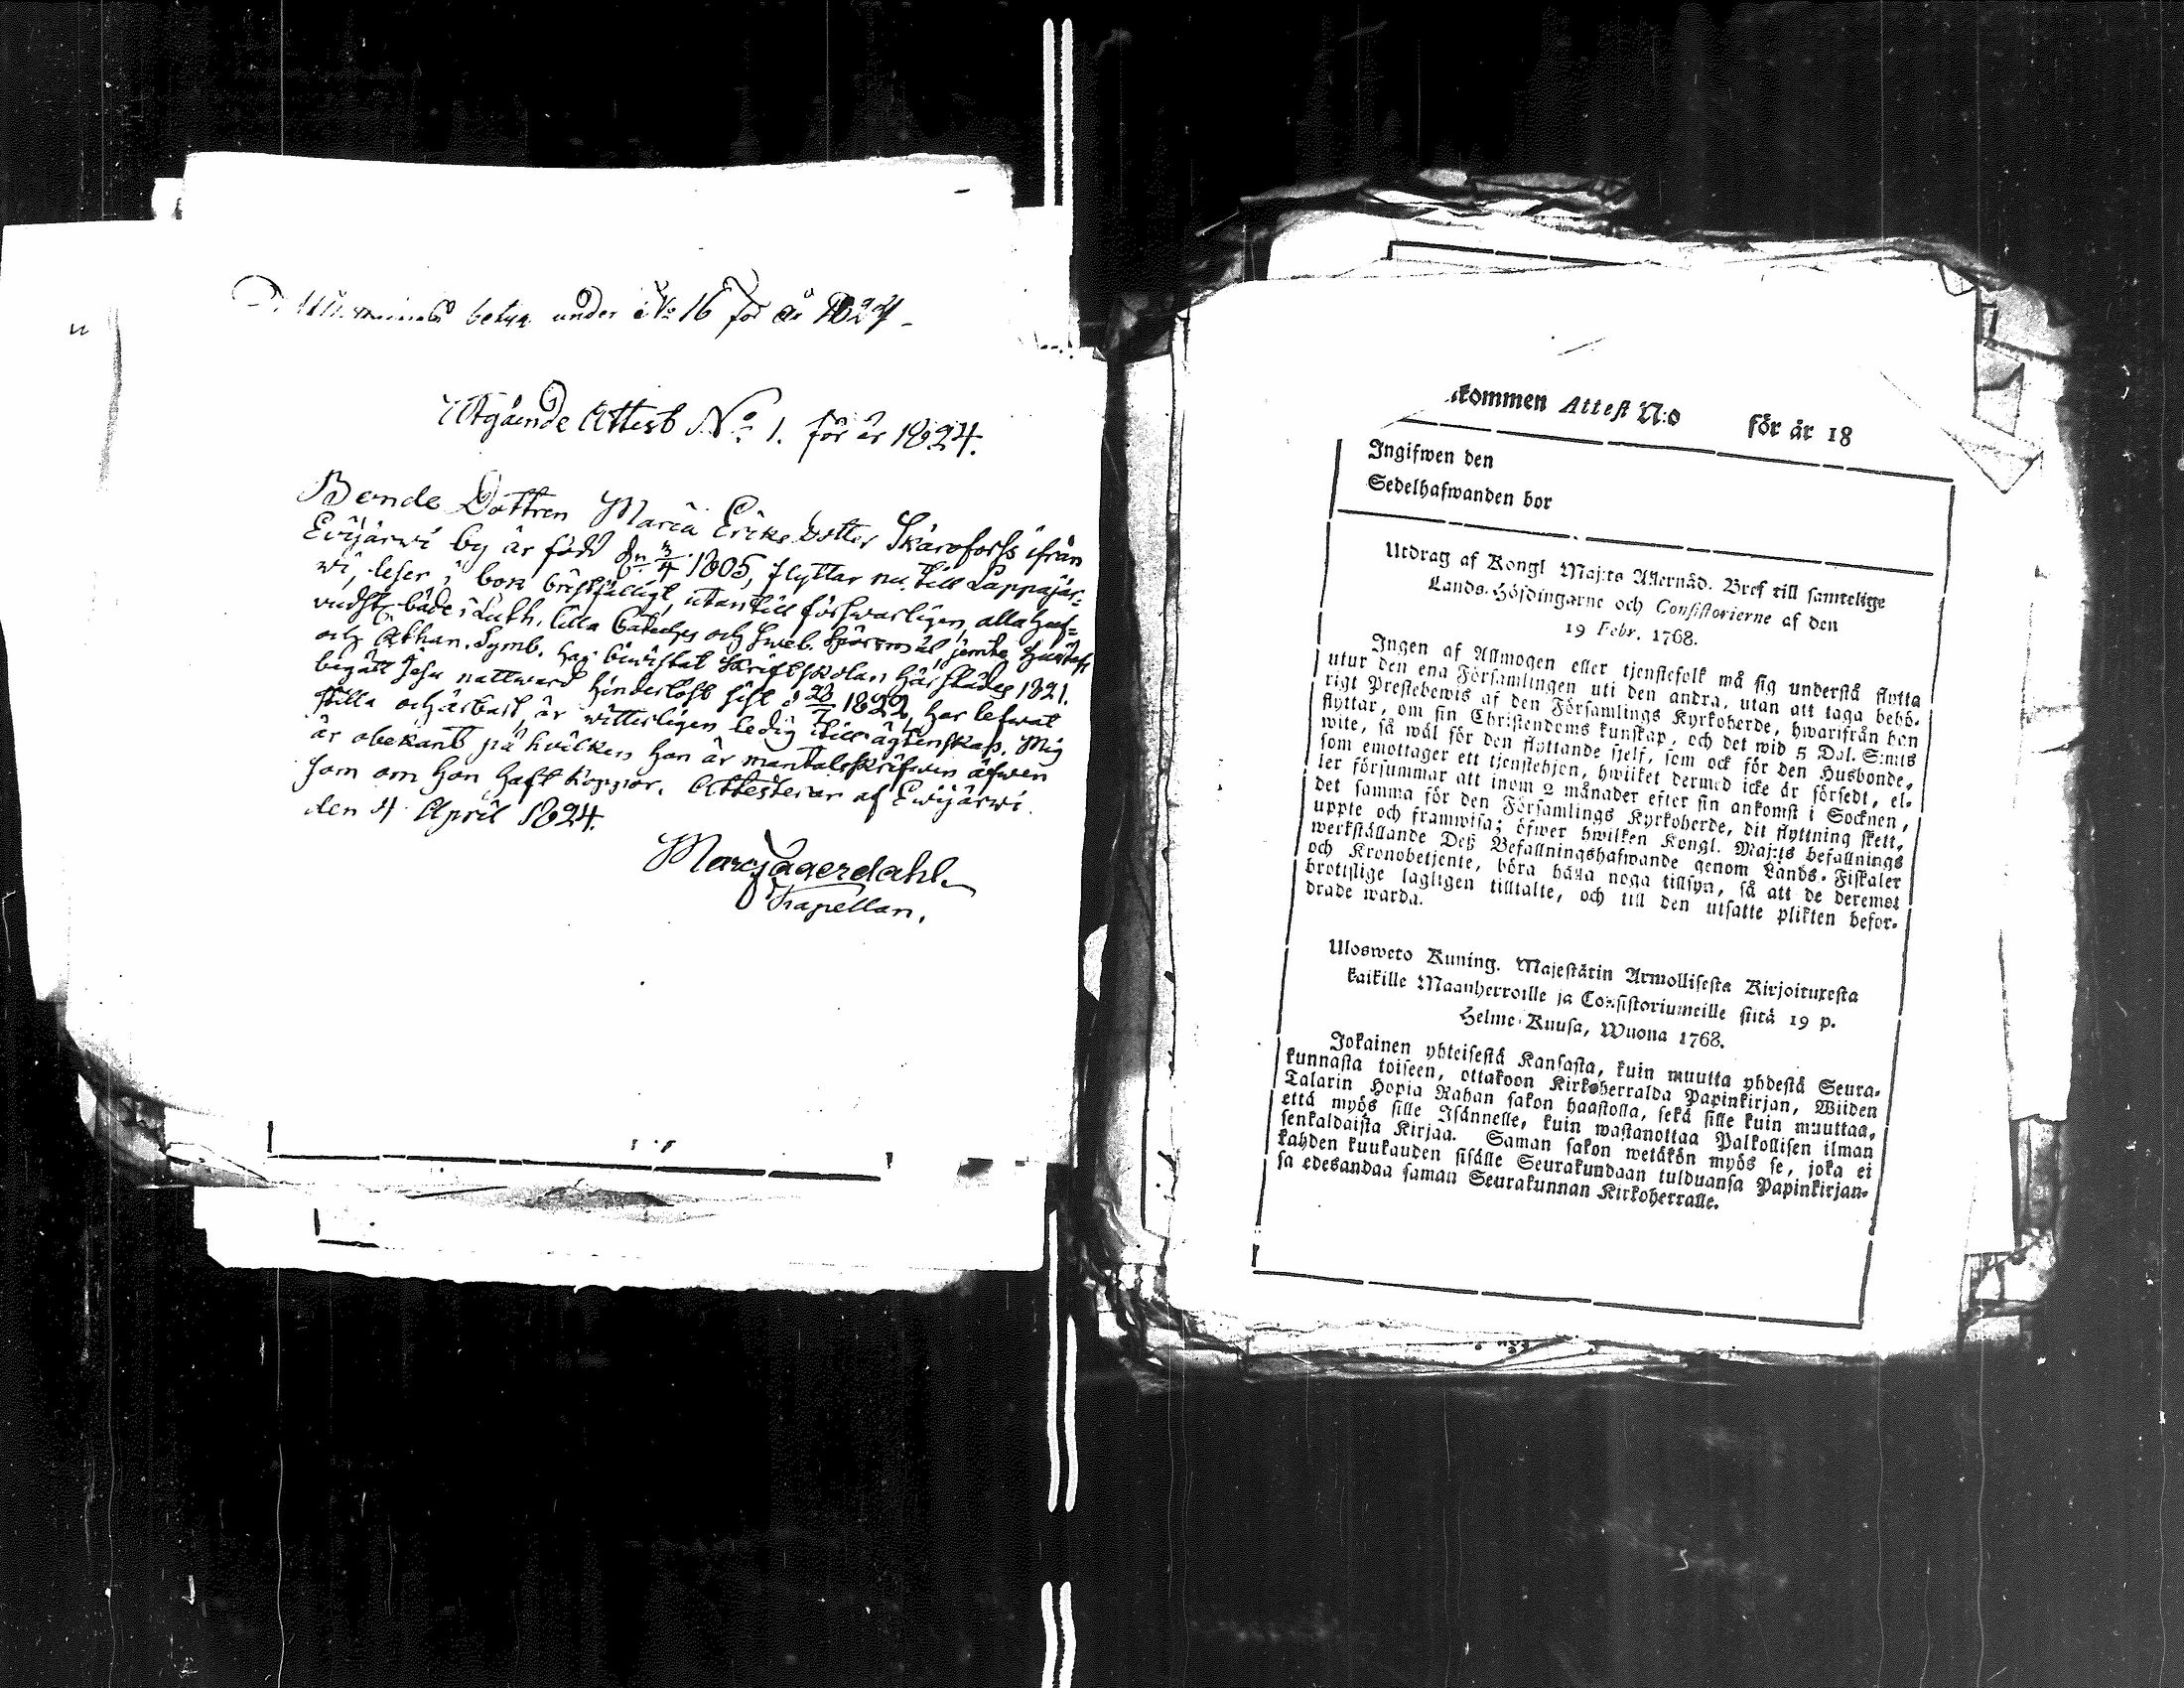 betyg under No 16 för år 1824
Utgående Attest No 1. för år 1824.
Bonde Dottren Maria Ericsdotter Skäroforss ifrån
Evijärwi by är född dn 3/4 1805, flyttar nu till Lappajär-
wi, läser i bok beskjedligt, utantill förswarligen, alla huf-
wudst. både i Luth. lilla Cateches och Sweb. spörsmål jemte Hustafl
och Athan. Symb. har biwistat Skriftskolan härstädes 1821.
begått Jesu nattward hinderlöst sist d 28/7 1822, har lefwat
stilla och ärbart, är witterligen ledig till ägtenskap. Mig
är obekant på hvilken hon är mantalsskrifwen äfwen
som om hon haft koppor. Attesterar af Ewijärwi
den 4 April 1824.
Marc Lagerdahl
Kapellan.
kommen Attest N:o för år 18
Ingifwen den
Sedelhafwanden bor
Utdrag af Kongl Maj:ts Allernåd. Bref till samtelige
Lands-Höfdingarne och Consistorierne af den
19 Febr. 1768.
Ingen af Allmogen eller tjenstefolk må sig understå flytta
utur den ena Församlingen uti den andra, utan att taga behö-
rigt Prestebewis af den Församlings Kyrkoherde, hwarifrån hon
flyttar, om sin Christendoms kunskap, och det wid 5 Dal. S:mts
wite, så wäl för den flyttande sjelf, som ock för den Husbonde,
som emottager ett tjenstehjon, hwilket dermed icke är försedt, el-
ler försummar att inom 2 månader efter sin ankomst i Socknen,
det samma för den Församlings Kyrkoherde, dit flyttning skett,
uppte och framwisa; öfwer hwilken Kongl. Maj:ts befallnings
werkställande Deß Befallningshafwande genom Lands-Fiskaler
och Kronobetjente, böra hålla noga tillsyn, så att de deremot
brottslige lagligen tilltalte, och till den utsatte plikten befor-
drade warda.
Ulosweto Kuning. Majestätin Armollisesta Kirjoituxesta
kaikille Maanherroille ja Consistoriumeille siitä 19 p.
Helme-Kuusa, Wuona 1768.
Jokainen yhteisestä Kansasta, kuin muutta yhdestä Seura-
kunnasta toiseen, ottakoon Kirkoherralda Papinkirjan, Wiiden
Talarin Hopia Rahan sakon haastolla, sekä sille kuin muuttaa,
että myös sille Isännelle, kuin wastanottaa Palkollisen ilman
senkaldaista Kirjaa. Saman sakon wetäkön myös se, joka ei
kahden kuukauden sisälle Seurakundaan tulduansa Papinkirjan-
sa edesandaa saman Seurakunnan Kirkoherralle.